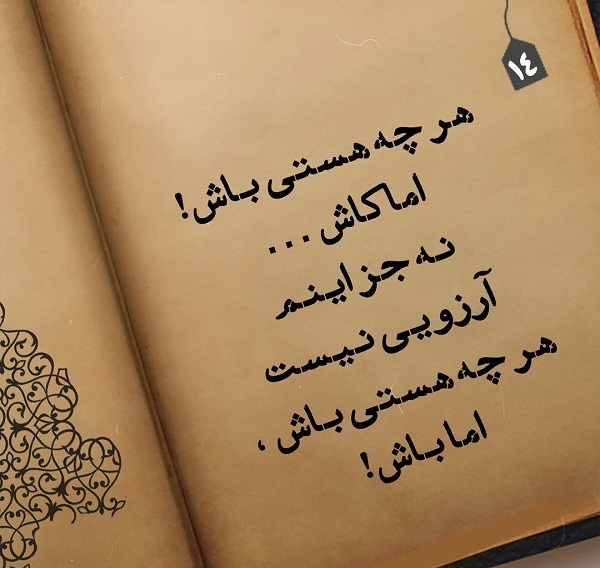 ١٤
هر چه هستی باش!
اما کاش...
نه جز اینم
آرزویی نیست
هر چه هستی باش،
اما باش!